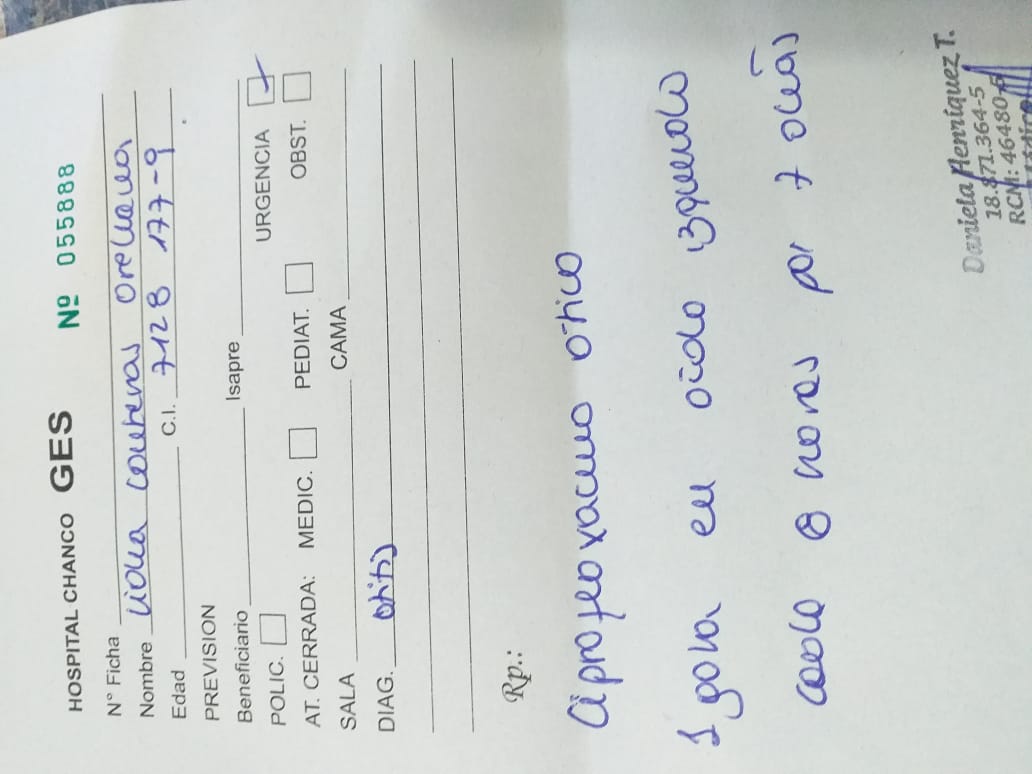 HOSPITAL CHANCO GES Nº 055888
N° Ficha
Nombre contreras orellana
Edad C.I. 7128 177-9
PREVISION
Beneficiario Isapre
POLIC. URGENCIA
AT. CERRADA: MEDIC. PEDIAT. OBST.
SALA CAMA
DIAG. otitis
Rp.:
Ciprofloxacino ótico
1 gota en oído izquierdo
cada 8 horas por 7 días
Daniela Henríquez T.
18.871.364-5
RCM: 46480-